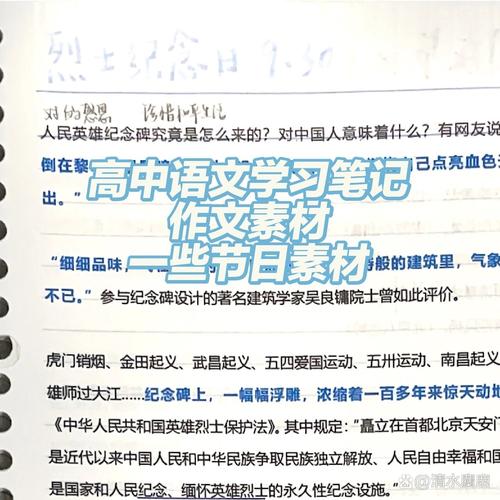 烈士纪念日 9.30
对的感恩 珍惜和平生活
人民英雄纪念碑究竟是怎么来的？对中国人意味着什么？有网友说
倒在黎
自己点亮血色
出。”
高中语文学习笔记
作文素材
一些节日素材
“细细品味，
般的建筑里，气象
不已。”参与纪念碑设计的著名建筑学家吴良镛院士曾如此评价。
虎门销烟、金田起义、武昌起义、五四爱国运动、五卅运动、南昌起义
雄师过大江……纪念碑上，一幅幅浮雕，浓缩着一百多年来惊天动地
《中华人民共和国英雄烈士保护法》。其中规定：“矗立在首都北京天安门
是近代以来中国人民和中华民族争取民族独立解放、人民自由幸福和国
是国家和人民纪念、缅怀英雄烈士的永久性纪念设施。”